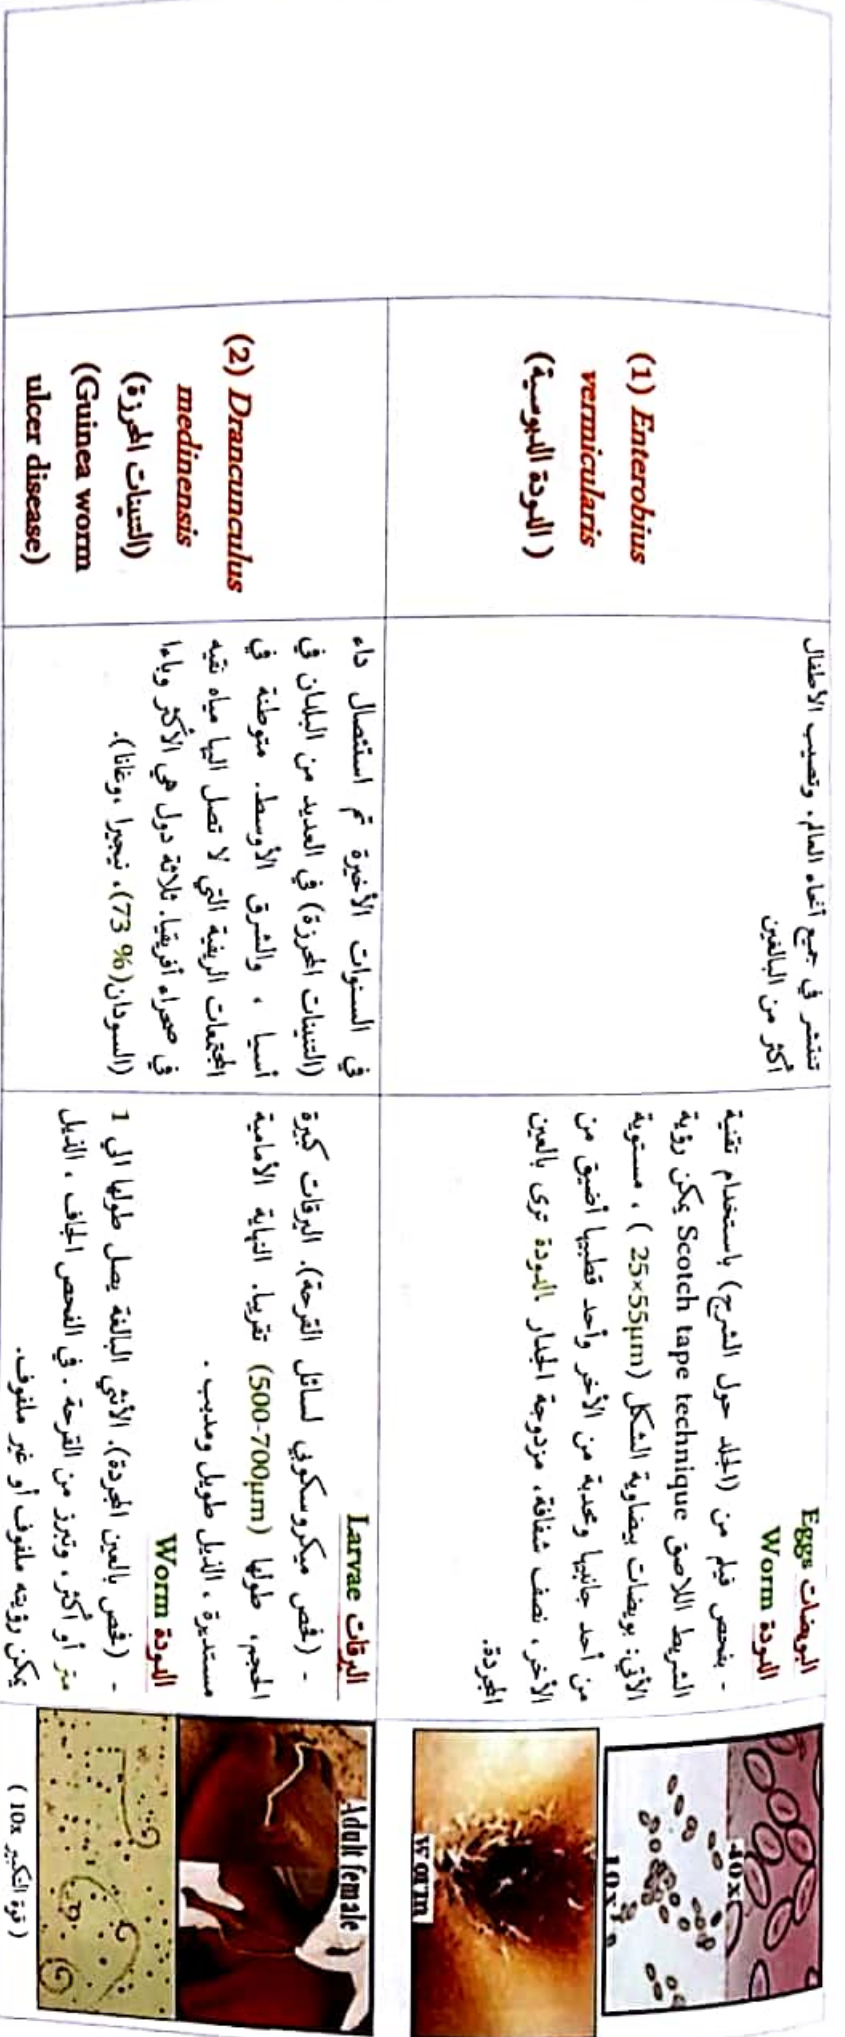 (1) Enterobius
vermicularis
(الدودة الدبوسية )
تنتشر في جميع أنحاء العالم، وتصيب الأطفال
أكثر من البالغين
البويضات Eggs
الدودة Worm
- بفحص فيلم من (الجلد حول الشرج) باستخدام تقنية
الشريط اللاصق Scotch tape technique يمكن رؤية
الأتي: بويضات بيضاوية الشكل (25×55µm ) ، مستوية
من أحد جانبيها ومحدبة من الأخر وأحد قطبيها أضيق من
الأخر، نصف شفافة، مزدوجة الجدار .الدودة ترى بالعين
المجردة.
40x
10x
worm
(2) Drancunculus
medinensis
(التنينات المخرزة)
(Guinea worm
ulcer disease)
في السنوات الأخيرة تم استئصال داء
(التنينات المخرزة) في العديد من البلدان في
أسيا ، والشرق الأوسط. متوطنة في
المجتمعات الريفية التي لا تصل اليها مياه نقيه
في صحراء أفريقيا. ثلاثة دول هي الأكثر وباءا
(السودان(% 73)، نيجيرا ،وغانا).
اليرقات Larvae
- (فحص ميكروسكوبي لسائل القرحة). اليرقات كبيرة
الحجم، طولها (500-700µm) تقريبا. النهاية الأمامية
مستديرة ، الذيل طويل ومدبب .
الدودة Worm
- (فحص بالعين المجردة). الأنثي البالغة يصل طولها الي 1
متر أو أكثر، وتبرز من القرحة . في الفحص الجاف ، الذيل
يمكن رؤيته ملفوف أو غير ملفوف.
Adult female
( قوة التكبير 10x )